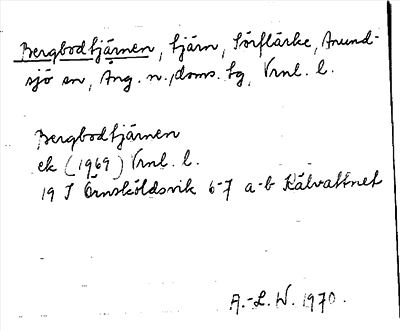 Bergbodtjärnen, tjärn, Sörflärke, Anund-
sjö sn, Ång. n., doms. sg, Vrnl. l.
Bergbodtjärnen
ek (1969) Vrnl. l.
19 J Örnsköldsvik 6-7 a-b Kälvattnet
A.-L. W. 1970.